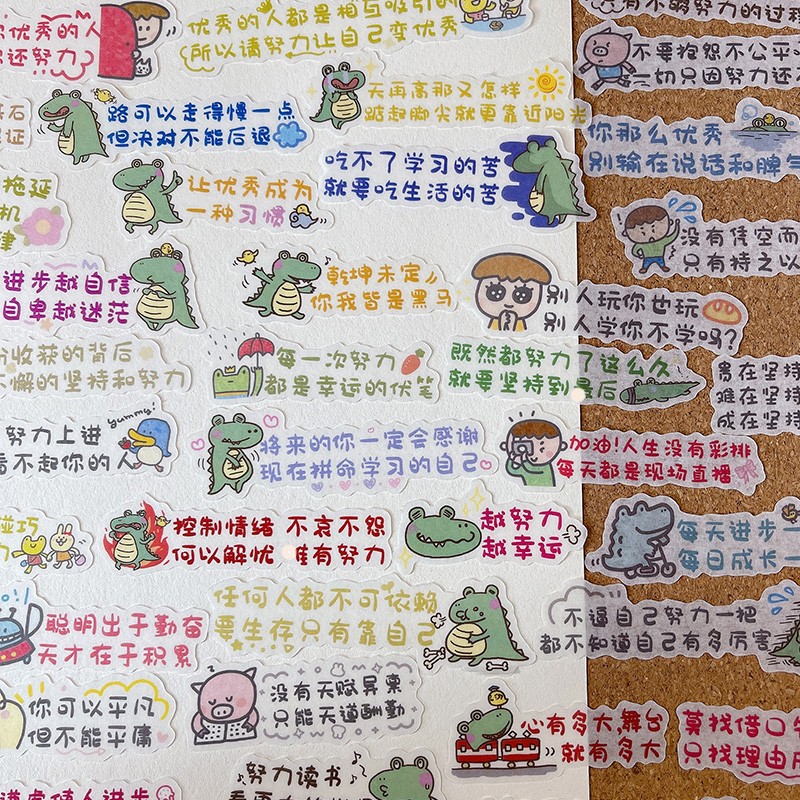 优秀的人
还努力
优秀的人都是相互吸引的
所以请努力让自己变优秀
有不够努力的过程
不要抱怨不公平
一切只因努力还不
路可以走得慢一点
但决对不能后退
天再高那又怎样
踮起脚尖就更靠近阳光
你那么优秀
别输在说话和脾气
吃不了学习的苦
就要吃生活的苦
拖延
机
律
让优秀成为
一种习惯
没有凭空而
只有持之以
进步越自信
自卑越迷茫
乾坤未定
你我皆是黑马
别人玩你也玩
别人学你不学吗?
收获的背后
不懈的坚持和努力
每一次努力
都是幸运的伏笔
既然都努力了这么久
就要坚持到最后
贵在坚持
难在坚持
成在坚持
努力上进
看不起你的人
yummy!
将来的你一定会感谢
现在拼命学习的自己
加油!人生没有彩排
每天都是现场直播
碰巧
力
控制情绪 不哀不怨
何以解忧 唯有努力
越努力
越幸运
每天进步一
每日成长一
聪明出于勤奋
天才在于积累
任何人都不可依赖
要生存只有靠自己
不逼自己努力一把
都不知道自己有多厉害
你可以平凡
但不能平庸
没有天赋异禀
只能天道酬勤
心有多大,舞台
就有多大
莫找借口
只找理由
使人进步
努力读书